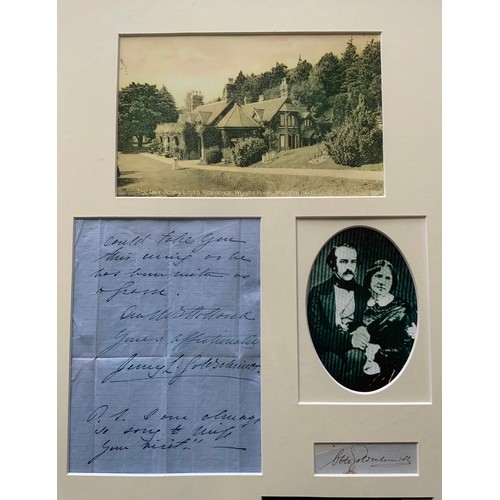 The late Jenny Lind's Residence, Wynds Point, Malvern
could take you
this evng as he
has been with us
Yours affectionately
Jenny L. Goldschmidt
P. S. I am always
so sorry to miss
your visit."
Otto Goldschmidt